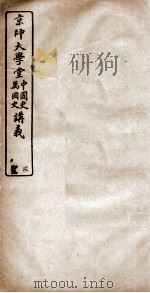 京師大學堂中國史萬國史講義
貳
mtoou.info